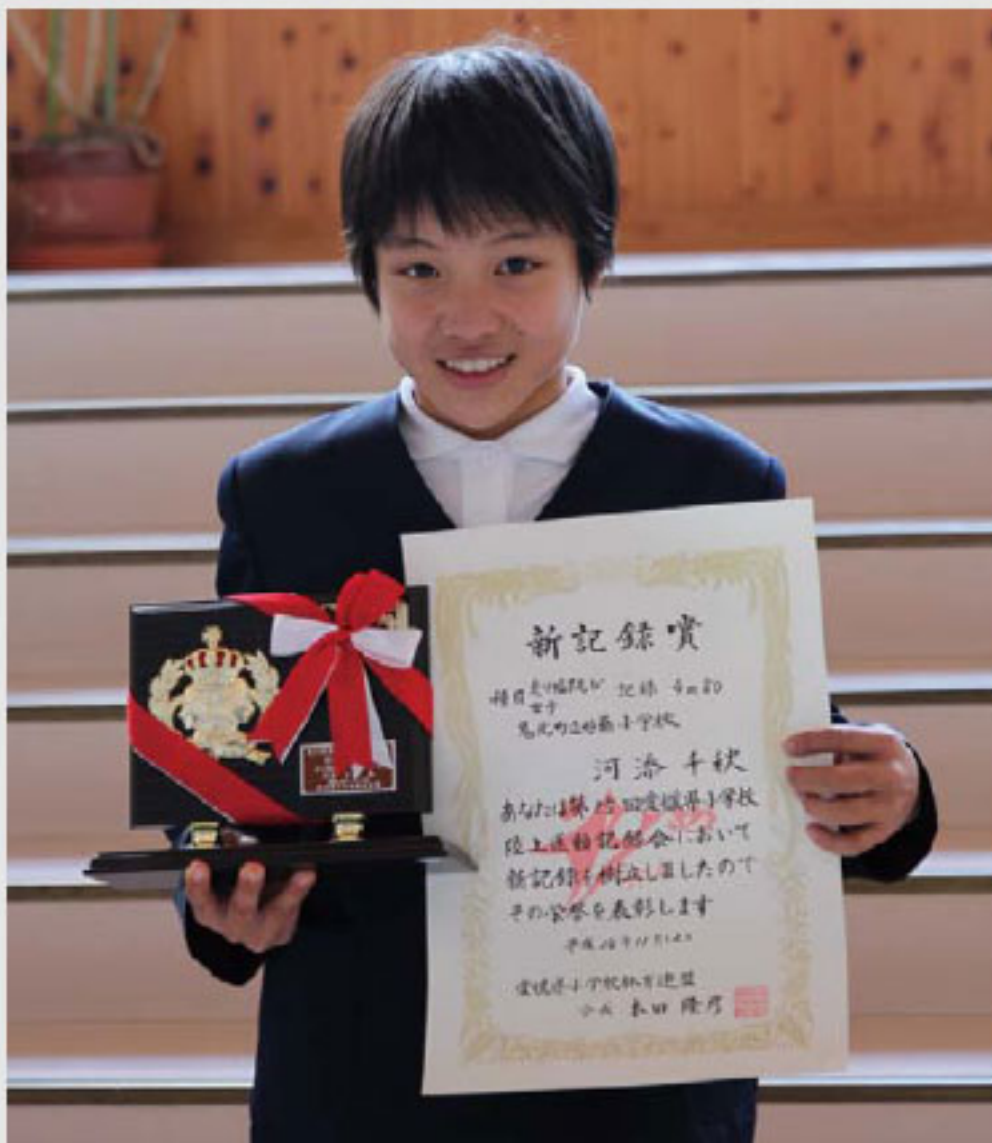 新記録賞
種目 走り幅跳び 記録 4m80
女子
鬼北町立好藤小学校
河添千秋
あなたは第 回愛媛県小学校
陸上運動記録会において
新記録を樹立しましたので
その栄誉を表彰します
平成
愛媛県小学校体育連盟
会長 隆彦